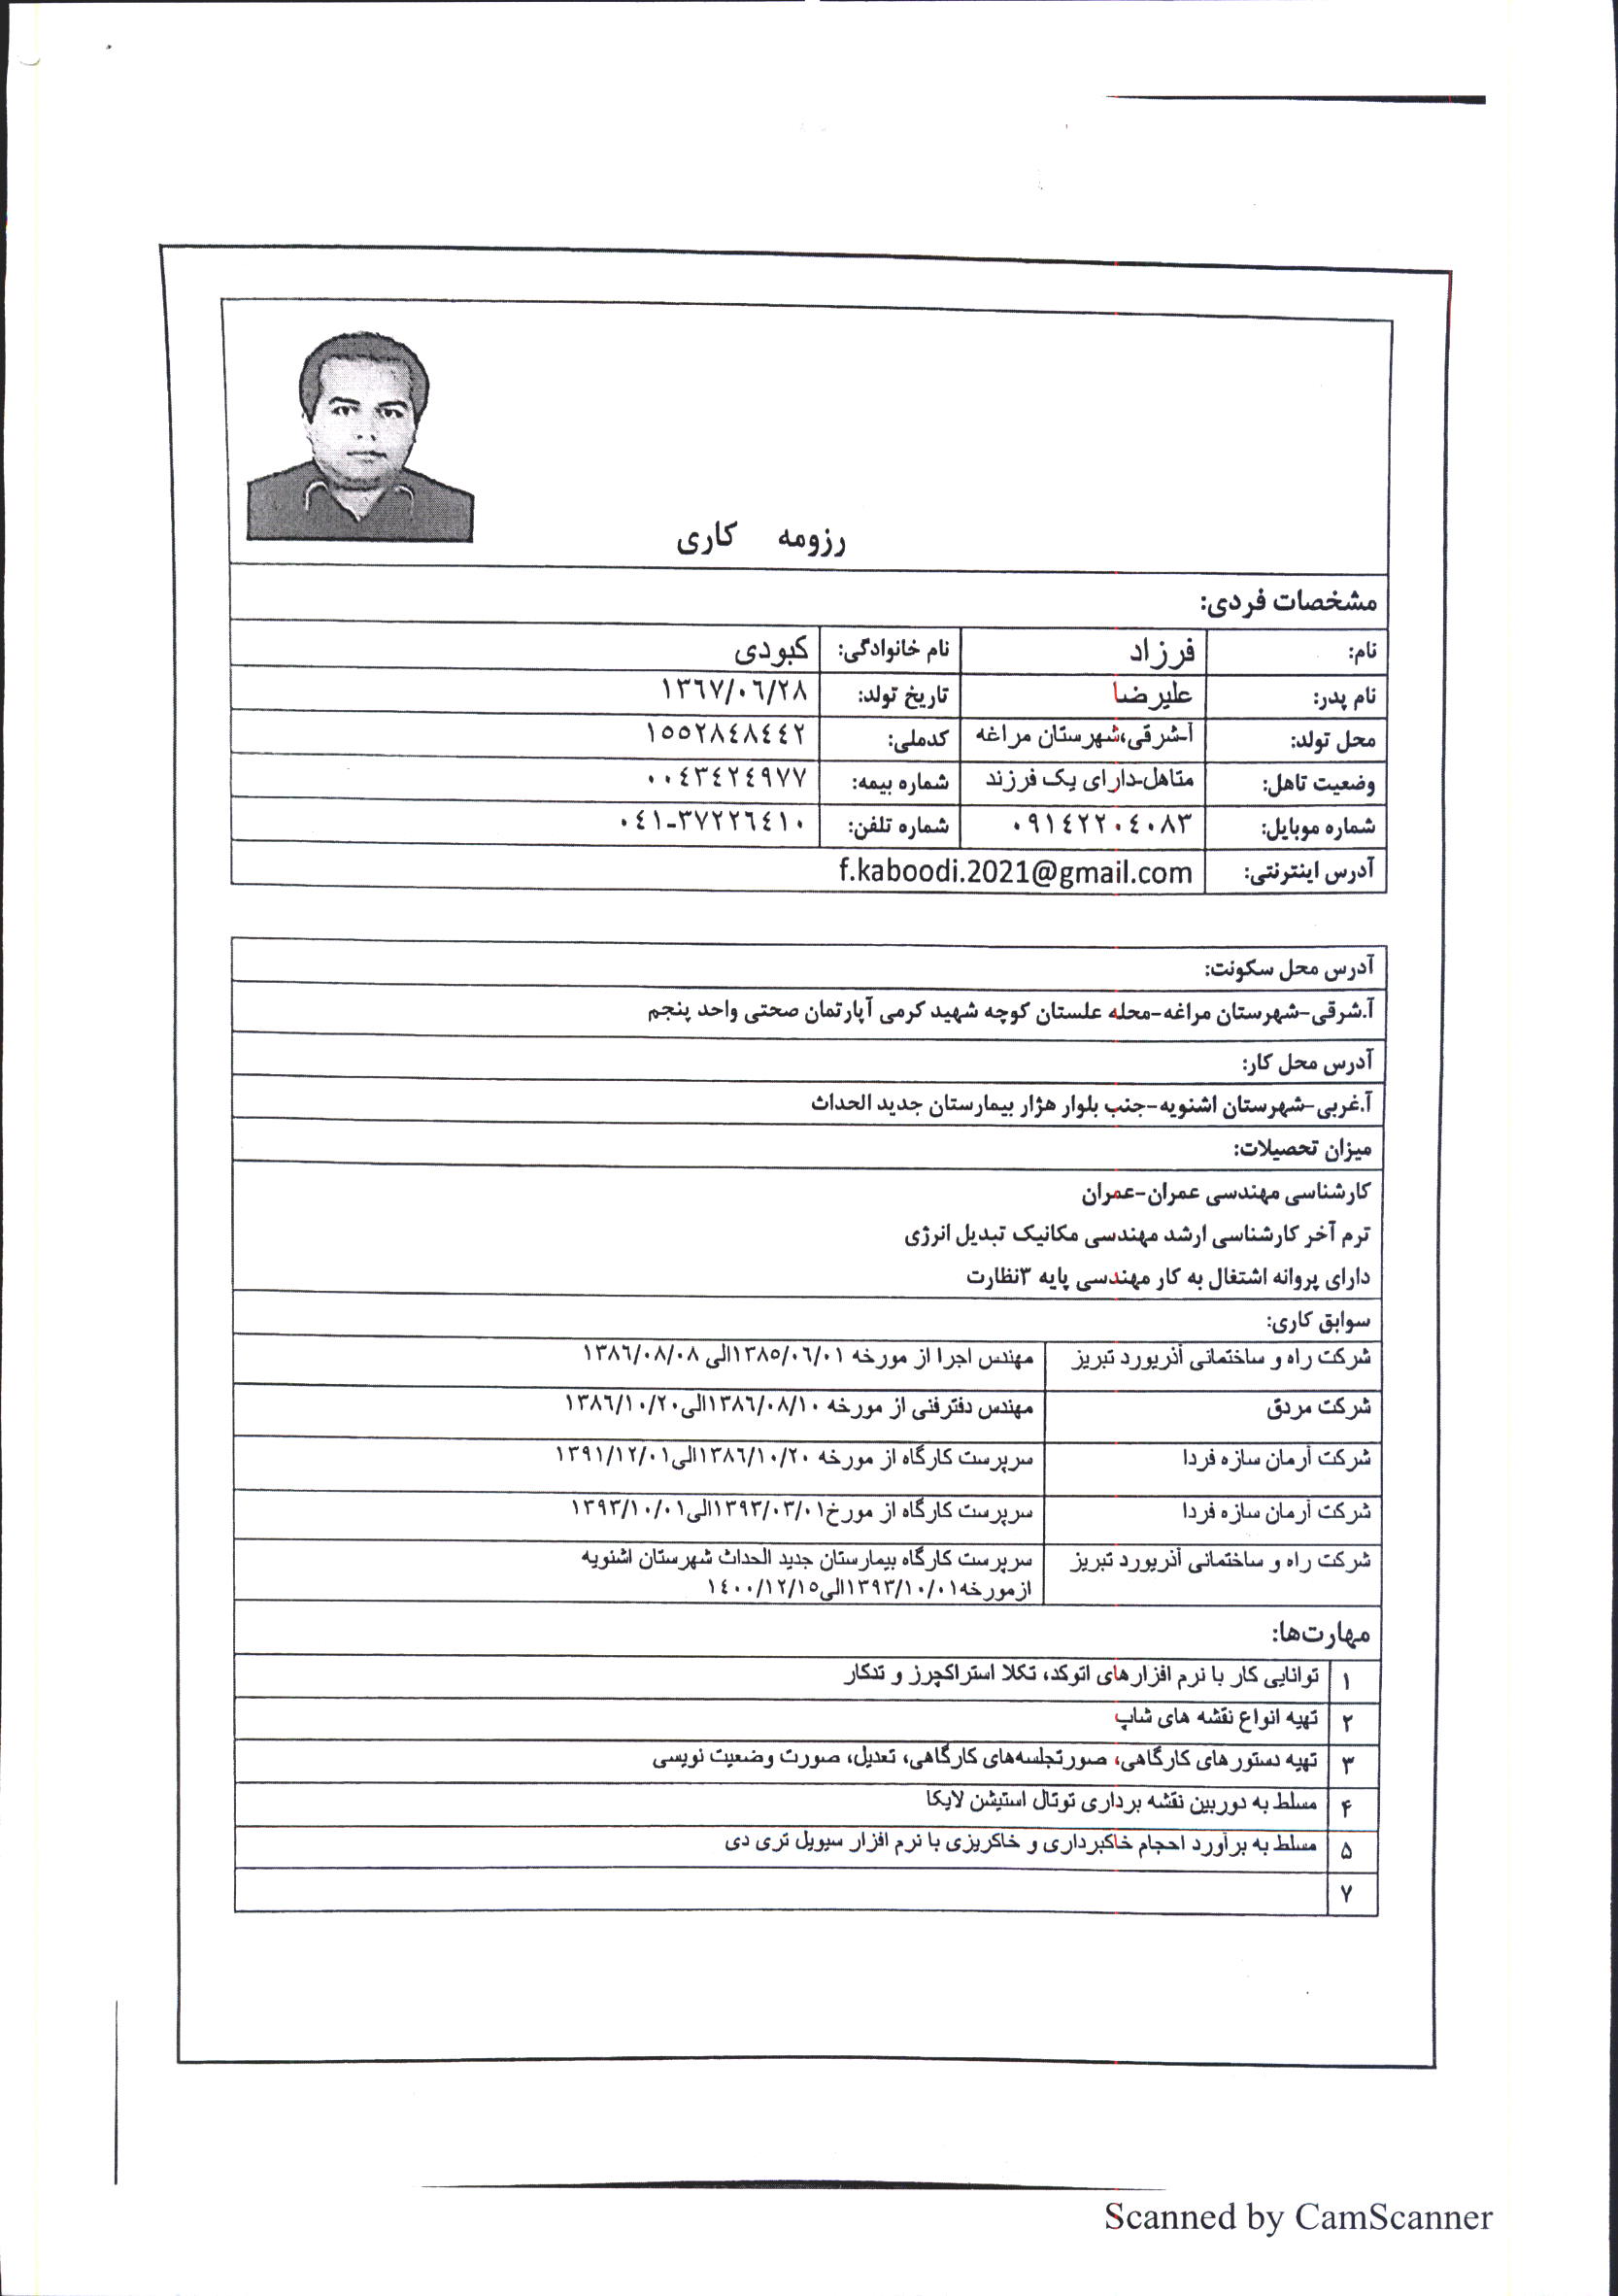 رزومه کاری
مشخصات فردی:
نام: فرزاد نام خانوادگی: کبودی
نام پدر: علیرضا تاریخ تولد: ۱۳۶۷/۰۶/۲۸
محل تولد: آ-شرقی،شهرستان مراغه کدملی: ۱۵۵۲۸۴۸۴۴۲
وضعیت تاهل: متاهل-دارای یک فرزند شماره بیمه: ۰۰۴۳۴۲۴۹۷۷
شماره موبایل: ۰۹۱۴۲۲۰۴۰۸۳ شماره تلفن: ۰۴۱-۳۷۲۲۶۴۱۰
آدرس اینترنتی: f.kaboodi.2021@gmail.com
آدرس محل سکونت:
آ.شرقی-شهرستان مراغه-محله علستان کوچه شهید کرمی آپارتمان صحتی واحد پنجم
آدرس محل کار:
آ.غربی-شهرستان اشنویه-جنب بلوار هژار بیمارستان جدید الحداث
میزان تحصیلات:
کارشناسی مهندسی عمران-عمران
ترم آخر کارشناسی ارشد مهندسی مکانیک تبدیل انرژی
دارای پروانه اشتغال به کار مهندسی پایه ۳نظارت
سوابق کاری:
شرکت راه و ساختمانی آذریورد تبریز مهندس اجرا از مورخه ۱۳۸۵/۰۶/۰۱الی ۱۳۸۶/۰۸/۰۸
شرکت مردق مهندس دفترفنی از مورخه ۱۳۸۶/۰۸/۱۰الی۱۳۸۶/۱۰/۲۰
شرکت آرمان سازه فردا سرپرست کارگاه از مورخه ۱۳۸۶/۱۰/۲۰الی۱۳۹۱/۱۲/۰۱
شرکت آرمان سازه فردا سرپرست کارگاه از مورخ۱۳۹۳/۰۳/۰۱الی۱۳۹۳/۱۰/۰۱
شرکت راه و ساختمانی آذریورد تبریز سرپرست کارگاه بیمارستان جدید الحداث شهرستان اشنویه
ازمورخه۱۳۹۳/۱۰/۰۱الی۱۴۰۰/۱۲/۱۵
مهارت‌ها:
۱ توانایی کار با نرم افزارهای اتوکد، تکلا استراکچرز و تدکار
۲ تهیه انواع نقشه های شاپ
۳ تهیه دستورهای کارگاهی، صورتجلسه‌های کارگاهی، تعدیل، صورت وضعیت نویسی
۴ مسلط به دوربین نقشه برداری توتال استیشن لایکا
۵ مسلط به برآورد احجام خاکبرداری و خاکریزی با نرم افزار سیویل تری دی
۷
Scanned by CamScanner